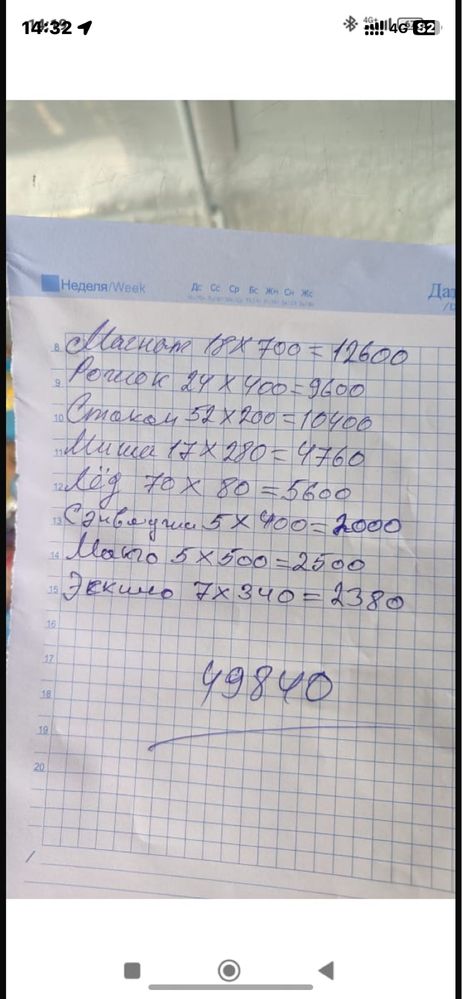 14:32 4G 82
Неделя/Week Дс Сс Ср Бс Жм Сн Жс Дат
8 Магнат 18 × 700 = 12600
9 Рожок 24 × 400 = 9600
10 Стакан 52 × 200 = 10400
11 Миша 17 × 280 = 4760
12 Лёд 70 × 80 = 5600
13 Сэнвидчи 5 × 400 = 2000
14 Манго 5 × 500 = 2500
15 Эскимо 7 × 340 = 2380
16
17
49840
18
19
20